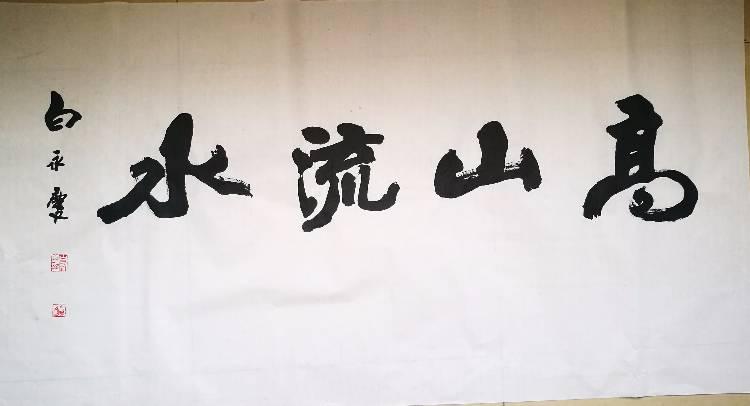 高山流水
白永庆